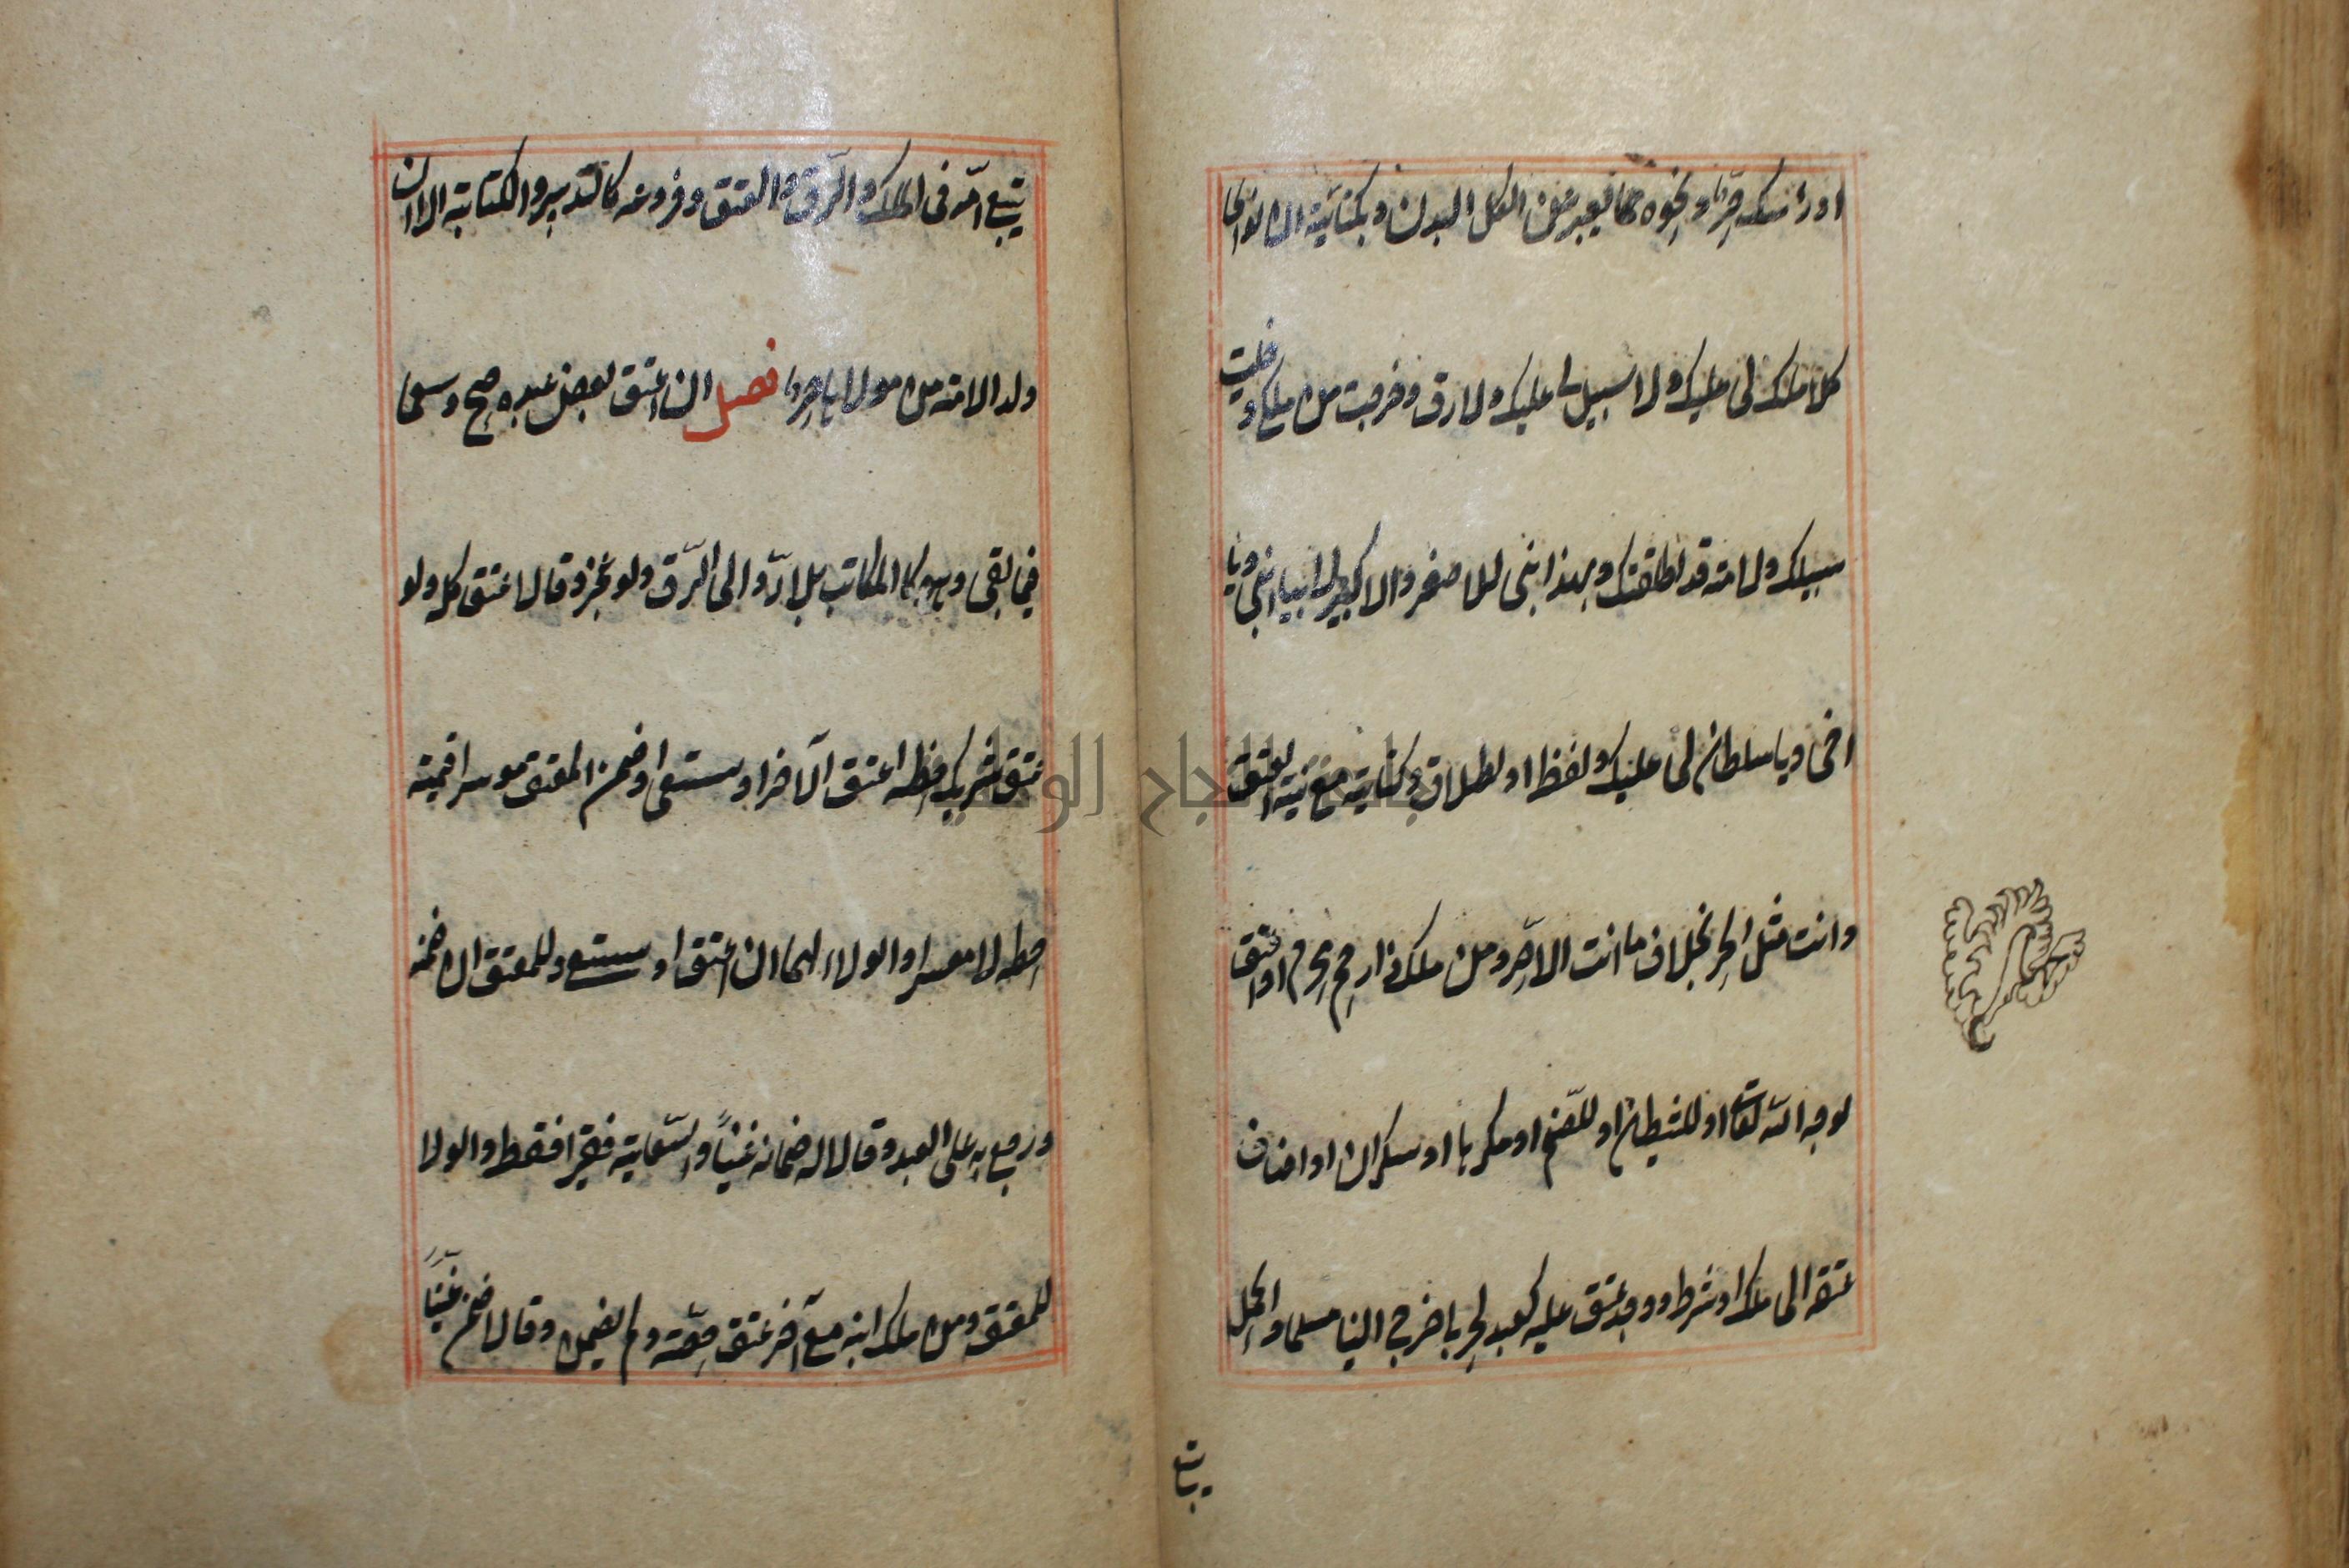 او رأسك حرّ او نحوه مما يعبر به عن الكل البدن وبكنايته ان نوى
كلا ملك لى عليك ولا سبيل لى عليك ولا رق وخرجت من ملكى وخليت
سبيلك ولامته قد اطلقتك وبهذا ابنى للاصغر والاكبر لا بيا ابنى ويا
اخى ويا سلطان لى عليك ولفظ او لطلاق وكنايته مع نية العتق
وانت مثل الحر بخلاف ما انت الا حرّ ومن ملك ذا رحم محرم او اعتق
لوجه الله تعالى او للشيطان او للصّنم او مكرها او سكران او اضاف
عتقه الى ملك او شرط ووجد عتق عليه كعبد لحربى خرج الينا مسلما والحمل
يتبع
يتبع امّه فى الملك والرّق والعتق وفروعه كالتدبير والكتابة الا ان
ولد الامة من مولاها حر فصل ان اعتق بعض عبده صح وسعى
فيما بقى وهو كالمكاتب بلا ردّ الى الرّق ولو عجز وقالا عتق كله ولو
عتق شريك حظه اعتق الآخر او استسعى او ضمن المعتق موسرا قيمة
حظه لا معسرا والولاء لهما ان اعتق او استسعى وللمعتق ان ضمنه
ورجع به على العبد وقالا له ضمانه غنيًّا والسّعاية فقيرا فقط والولا
للمعتق ومن ملك ابنه مع آخر عتق حصّته ولم يضمن وقالا ضمن غنيًّا